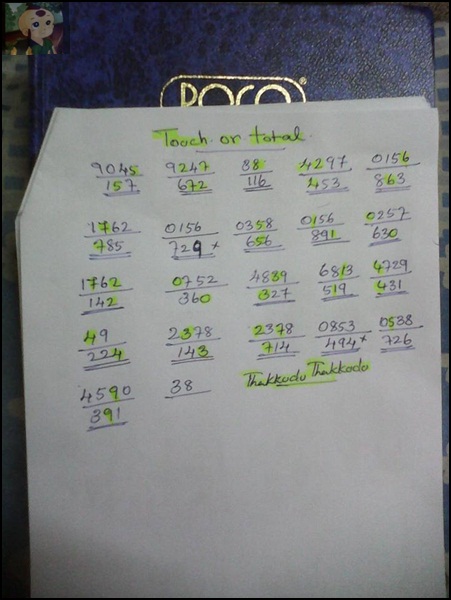 POCO
Touch or total.
9045 9247 38 4297 0156
157 672 116 453 863
1762 0156 0358 0156 0257
785 729 x 656 891 630
1762 0752 4839 6813 4729
142 360 327 519 431
49 2378 2378 0853 0538
224 143 714 494 x 726
4590 38 Thakkudu Thakkudu
391